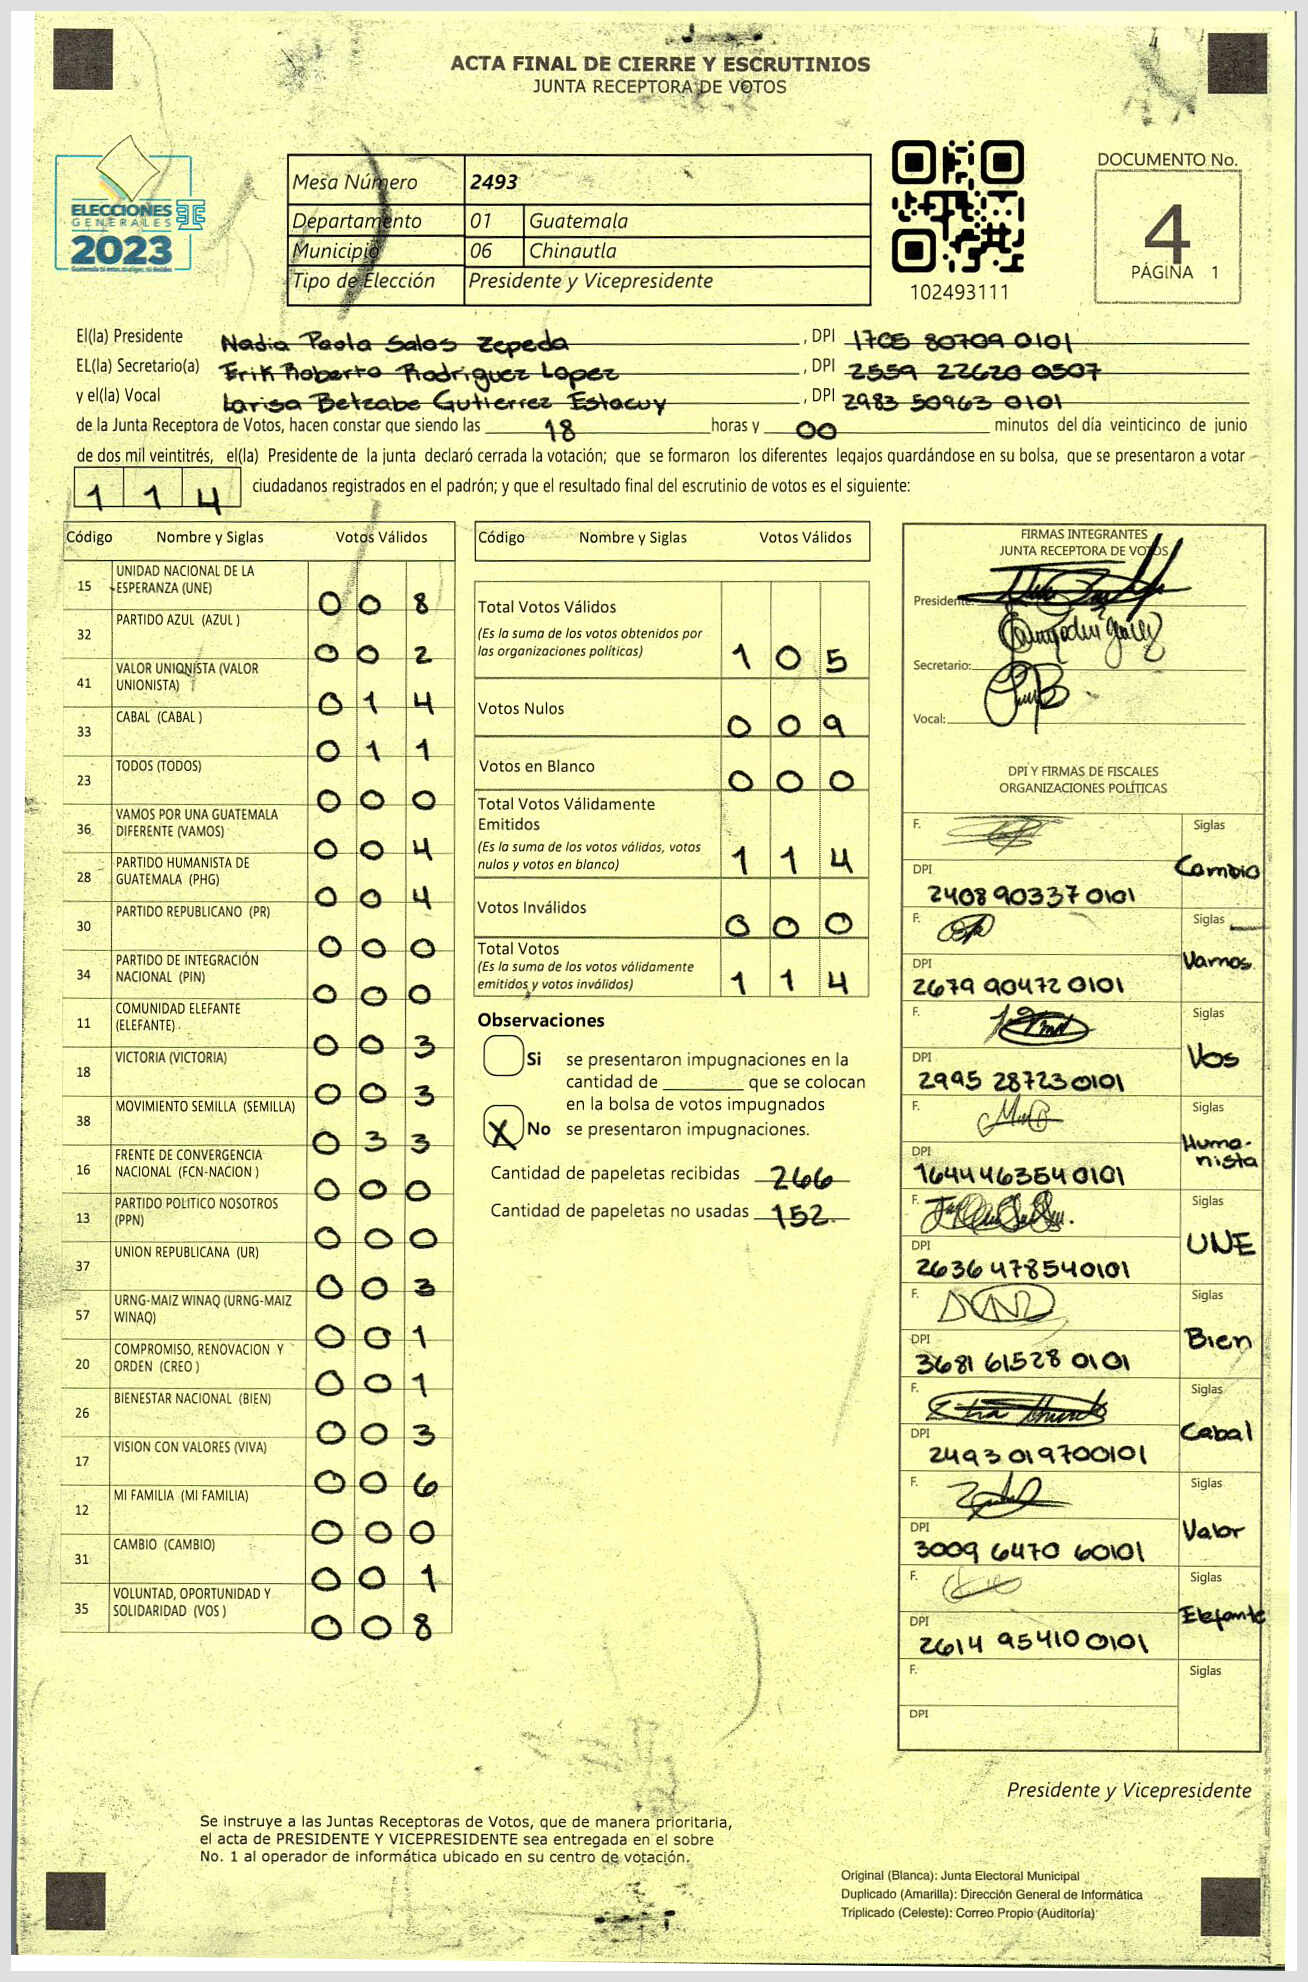 ACTA FINAL DE CIERRE Y ESCRUTINIOS
JUNTA RECEPTORA DE VOTOS
ELECCIONES
GENERALES
2023
Mesa Número 2493
Departamento 01 Guatemala
Municipio 06 Chinautla
Tipo de Elección Presidente y Vicepresidente
102493111
DOCUMENTO No.
4
PÁGINA 1
El(la) Presidente Nadia Paola Salas Zepeda, DPI 1705 80709 0101
EL(la) Secretario(a) Erik Roberto Rodriguez Lopez, DPI 2559 22620 0507
y el(la) Vocal Larisa Betzabe Gutierrez Estacuy, DPI 2983 50963 0101
de la Junta Receptora de Votos, hacen constar que siendo las 18 horas y 00 minutos del día veinticinco de junio
de dos mil veintitrés, el(la) Presidente de la junta declaró cerrada la votación; que se formaron los diferentes legajos guardándose en su bolsa, que se presentaron a votar
1 1 4 ciudadanos registrados en el padrón; y que el resultado final del escrutinio de votos es el siguiente:
Código Nombre y Siglas Votos Válidos
15 UNIDAD NACIONAL DE LA ESPERANZA (UNE) 0 0 8
32 PARTIDO AZUL (AZUL ) 0 0 2
41 VALOR UNIONISTA (VALOR UNIONISTA) 0 1 4
33 CABAL (CABAL ) 0 1 1
23 TODOS (TODOS) 0 0 0
36 VAMOS POR UNA GUATEMALA DIFERENTE (VAMOS) 0 0 4
28 PARTIDO HUMANISTA DE GUATEMALA (PHG) 0 0 4
30 PARTIDO REPUBLICANO (PR) 0 0 0
34 PARTIDO DE INTEGRACIÓN NACIONAL (PIN) 0 0 0
11 COMUNIDAD ELEFANTE (ELEFANTE) 0 0 3
18 VICTORIA (VICTORIA) 0 0 3
38 MOVIMIENTO SEMILLA (SEMILLA) 0 3 3
16 FRENTE DE CONVERGENCIA NACIONAL (FCN-NACION ) 0 0 0
13 PARTIDO POLITICO NOSOTROS (PPN) 0 0 0
37 UNION REPUBLICANA (UR) 0 0 3
57 URNG-MAIZ WINAQ (URNG-MAIZ WINAQ) 0 0 1
20 COMPROMISO, RENOVACION Y ORDEN (CREO ) 0 0 1
26 BIENESTAR NACIONAL (BIEN) 0 0 3
17 VISION CON VALORES (VIVA) 0 0 6
12 MI FAMILIA (MI FAMILIA) 0 0 0
31 CAMBIO (CAMBIO) 0 0 1
35 VOLUNTAD, OPORTUNIDAD Y SOLIDARIDAD (VOS ) 0 0 8
Código Nombre y Siglas Votos Válidos
Total Votos Válidos
(Es la suma de los votos obtenidos por
las organizaciones políticas) 1 0 5
Votos Nulos 0 0 9
Votos en Blanco 0 0 0
Total Votos Válidamente
Emitidos
(Es la suma de los votos válidos, votos
nulos y votos en blanco) 1 1 4
Votos Inválidos 0 0 0
Total Votos
(Es la suma de los votos válidamente
emitidos y votos inválidos) 1 1 4
Observaciones
Si se presentaron impugnaciones en la
cantidad de ________ que se colocan
en la bolsa de votos impugnados
X No se presentaron impugnaciones.
Cantidad de papeletas recibidas 266
Cantidad de papeletas no usadas 152
FIRMAS INTEGRANTES
JUNTA RECEPTORA DE VOTOS
Presidente:
Secretario:
Vocal:
DPI Y FIRMAS DE FISCALES
ORGANIZACIONES POLÍTICAS
F. Siglas Cambio
DPI 2408 90337 0101
F. Siglas Vamos
DPI 2679 90472 0101
F. Siglas Vos
DPI 2995 28723 0101
F. Siglas Huma-nista
DPI 1644 46354 0101
F. Siglas UNE
DPI 2636 47854 0101
F. Siglas Bien
DPI 3681 61528 0101
F. Siglas Cabal
DPI 2493 01970 0101
F. Siglas Valor
DPI 3009 6470 60101
F. Siglas Elefante
DPI 2614 95410 0101
F. Siglas
DPI
Presidente y Vicepresidente
Se instruye a las Juntas Receptoras de Votos, que de manera prioritaria,
el acta de PRESIDENTE Y VICEPRESIDENTE sea entregada en el sobre
No. 1 al operador de informática ubicado en su centro de votación.
Original (Blanca): Junta Electoral Municipal
Duplicado (Amarilla): Dirección General de Informática
Triplicado (Celeste): Correo Propio (Auditoría)